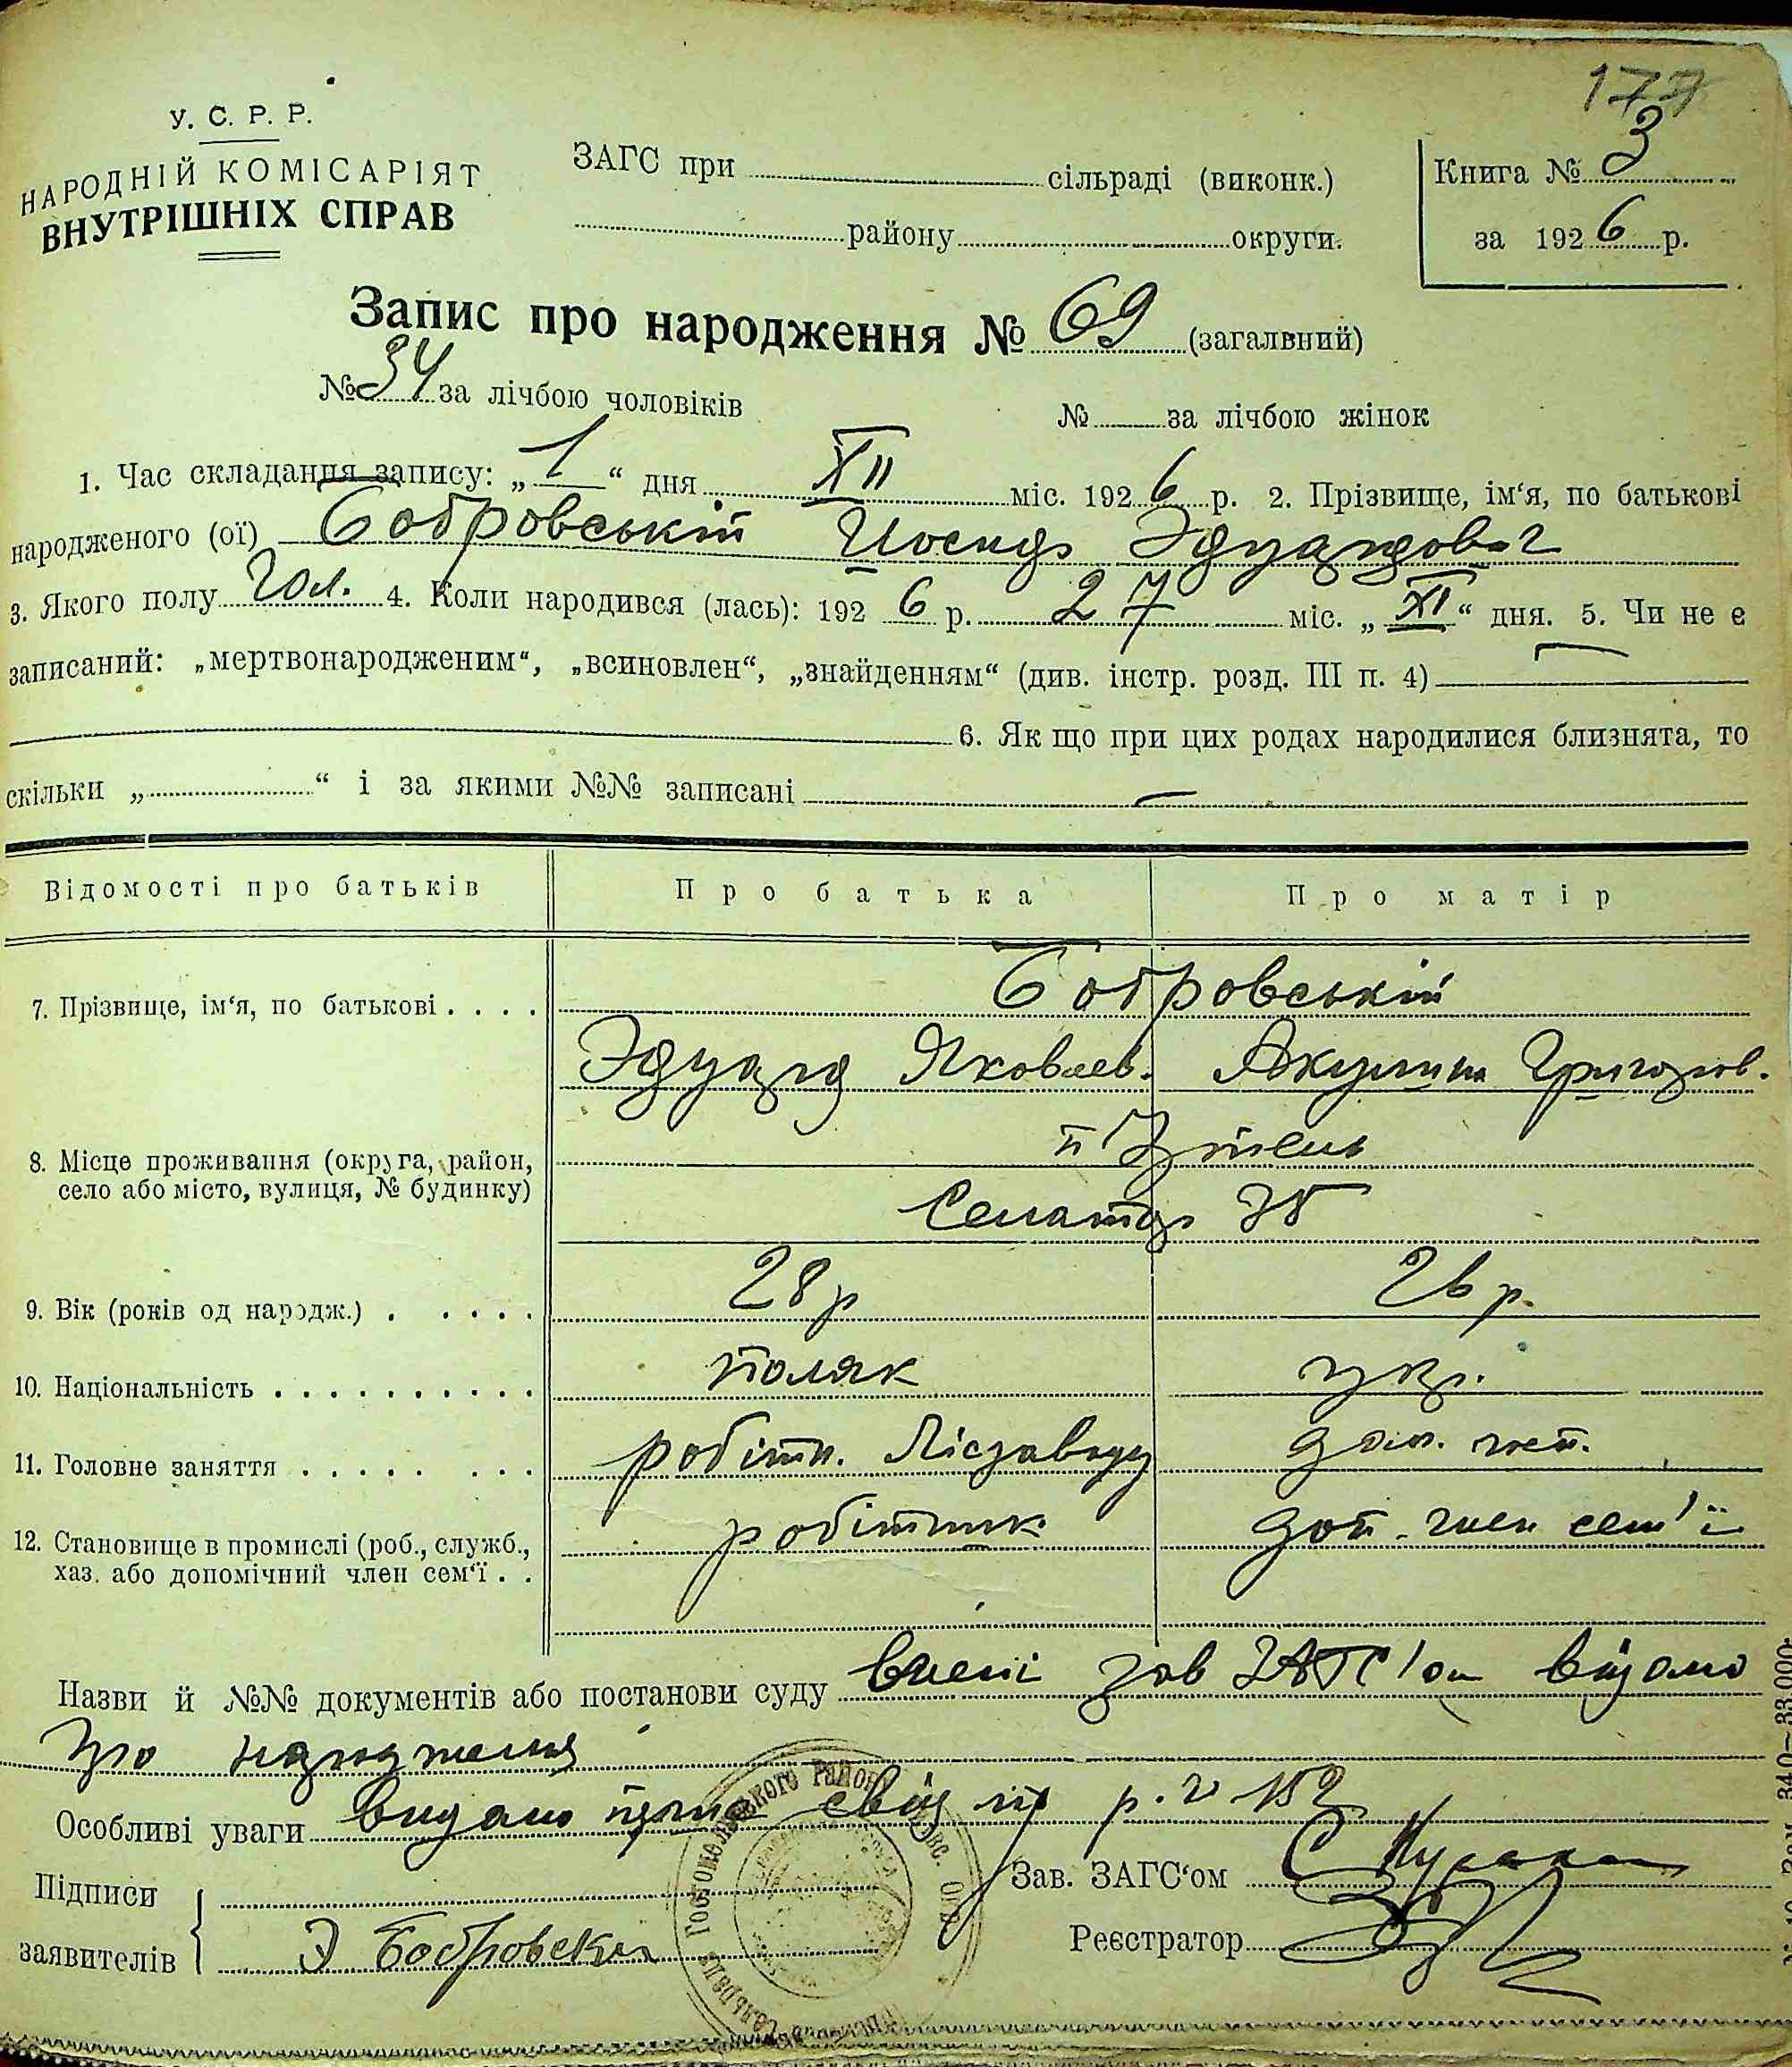 177
У. С. Р. Р.
НАРОДНІЙ КОМІСАРІЯТ
ВНУТРІШНІХ СПРАВ
ЗАГС при сільраді (виконк.)
району округи.
Книга № 3
за 1926 р.
Запис про народження № 69 (загалвний)
№ 34 за лічбою чоловіків № за лічбою жінок
1. Час складання запису: „1“ дня XII міс. 1926 р. 2. Прізвище, ім‘я, по батькові
народженого (ої) Бобровській Иосифъ Эдуардович
3. Якого полу чол. 4. Коли народився (лась): 1926 р. 27 міс. „XI“ дня. 5. Чи не є
записаний: „мертвонародженим“, „всиновлен“, „знайденням“ (див. інстр. розд. III п. 4) —
6. Як що при цих родах народилися близнята, то
скільки „ “ і за якими №№ записані —
Відомості про батьків Про батька Про матір
7. Прізвище, ім‘я, по батькові . . . . Бобровській
Эдуард Яковлев. Акулина Григоров.
8. Місце проживання (округа, район,
село або місто, вулиця, № будинку)
п
9. Вік (років од народж.) . . . . . 28 р 26 р.
10. Національність . . . . . . . . . . поляк укр.
11. Головне заняття . . . . . . . . робітн. Лісзаводу дом. госп.
12. Становище в промислі (роб., служб.,
хаз. або допомічний член сем‘ї . . робітник доп. член сем'ї
Назви й №№ документів або постанови суду зав ЗАГС'ом відомо
про народження
Особливі уваги видано свід р. № 152
Підписи
заявителів Э Бобровский
Зав. ЗАГС‘ом
Реєстратор
Гостомельського Район
340—33.000